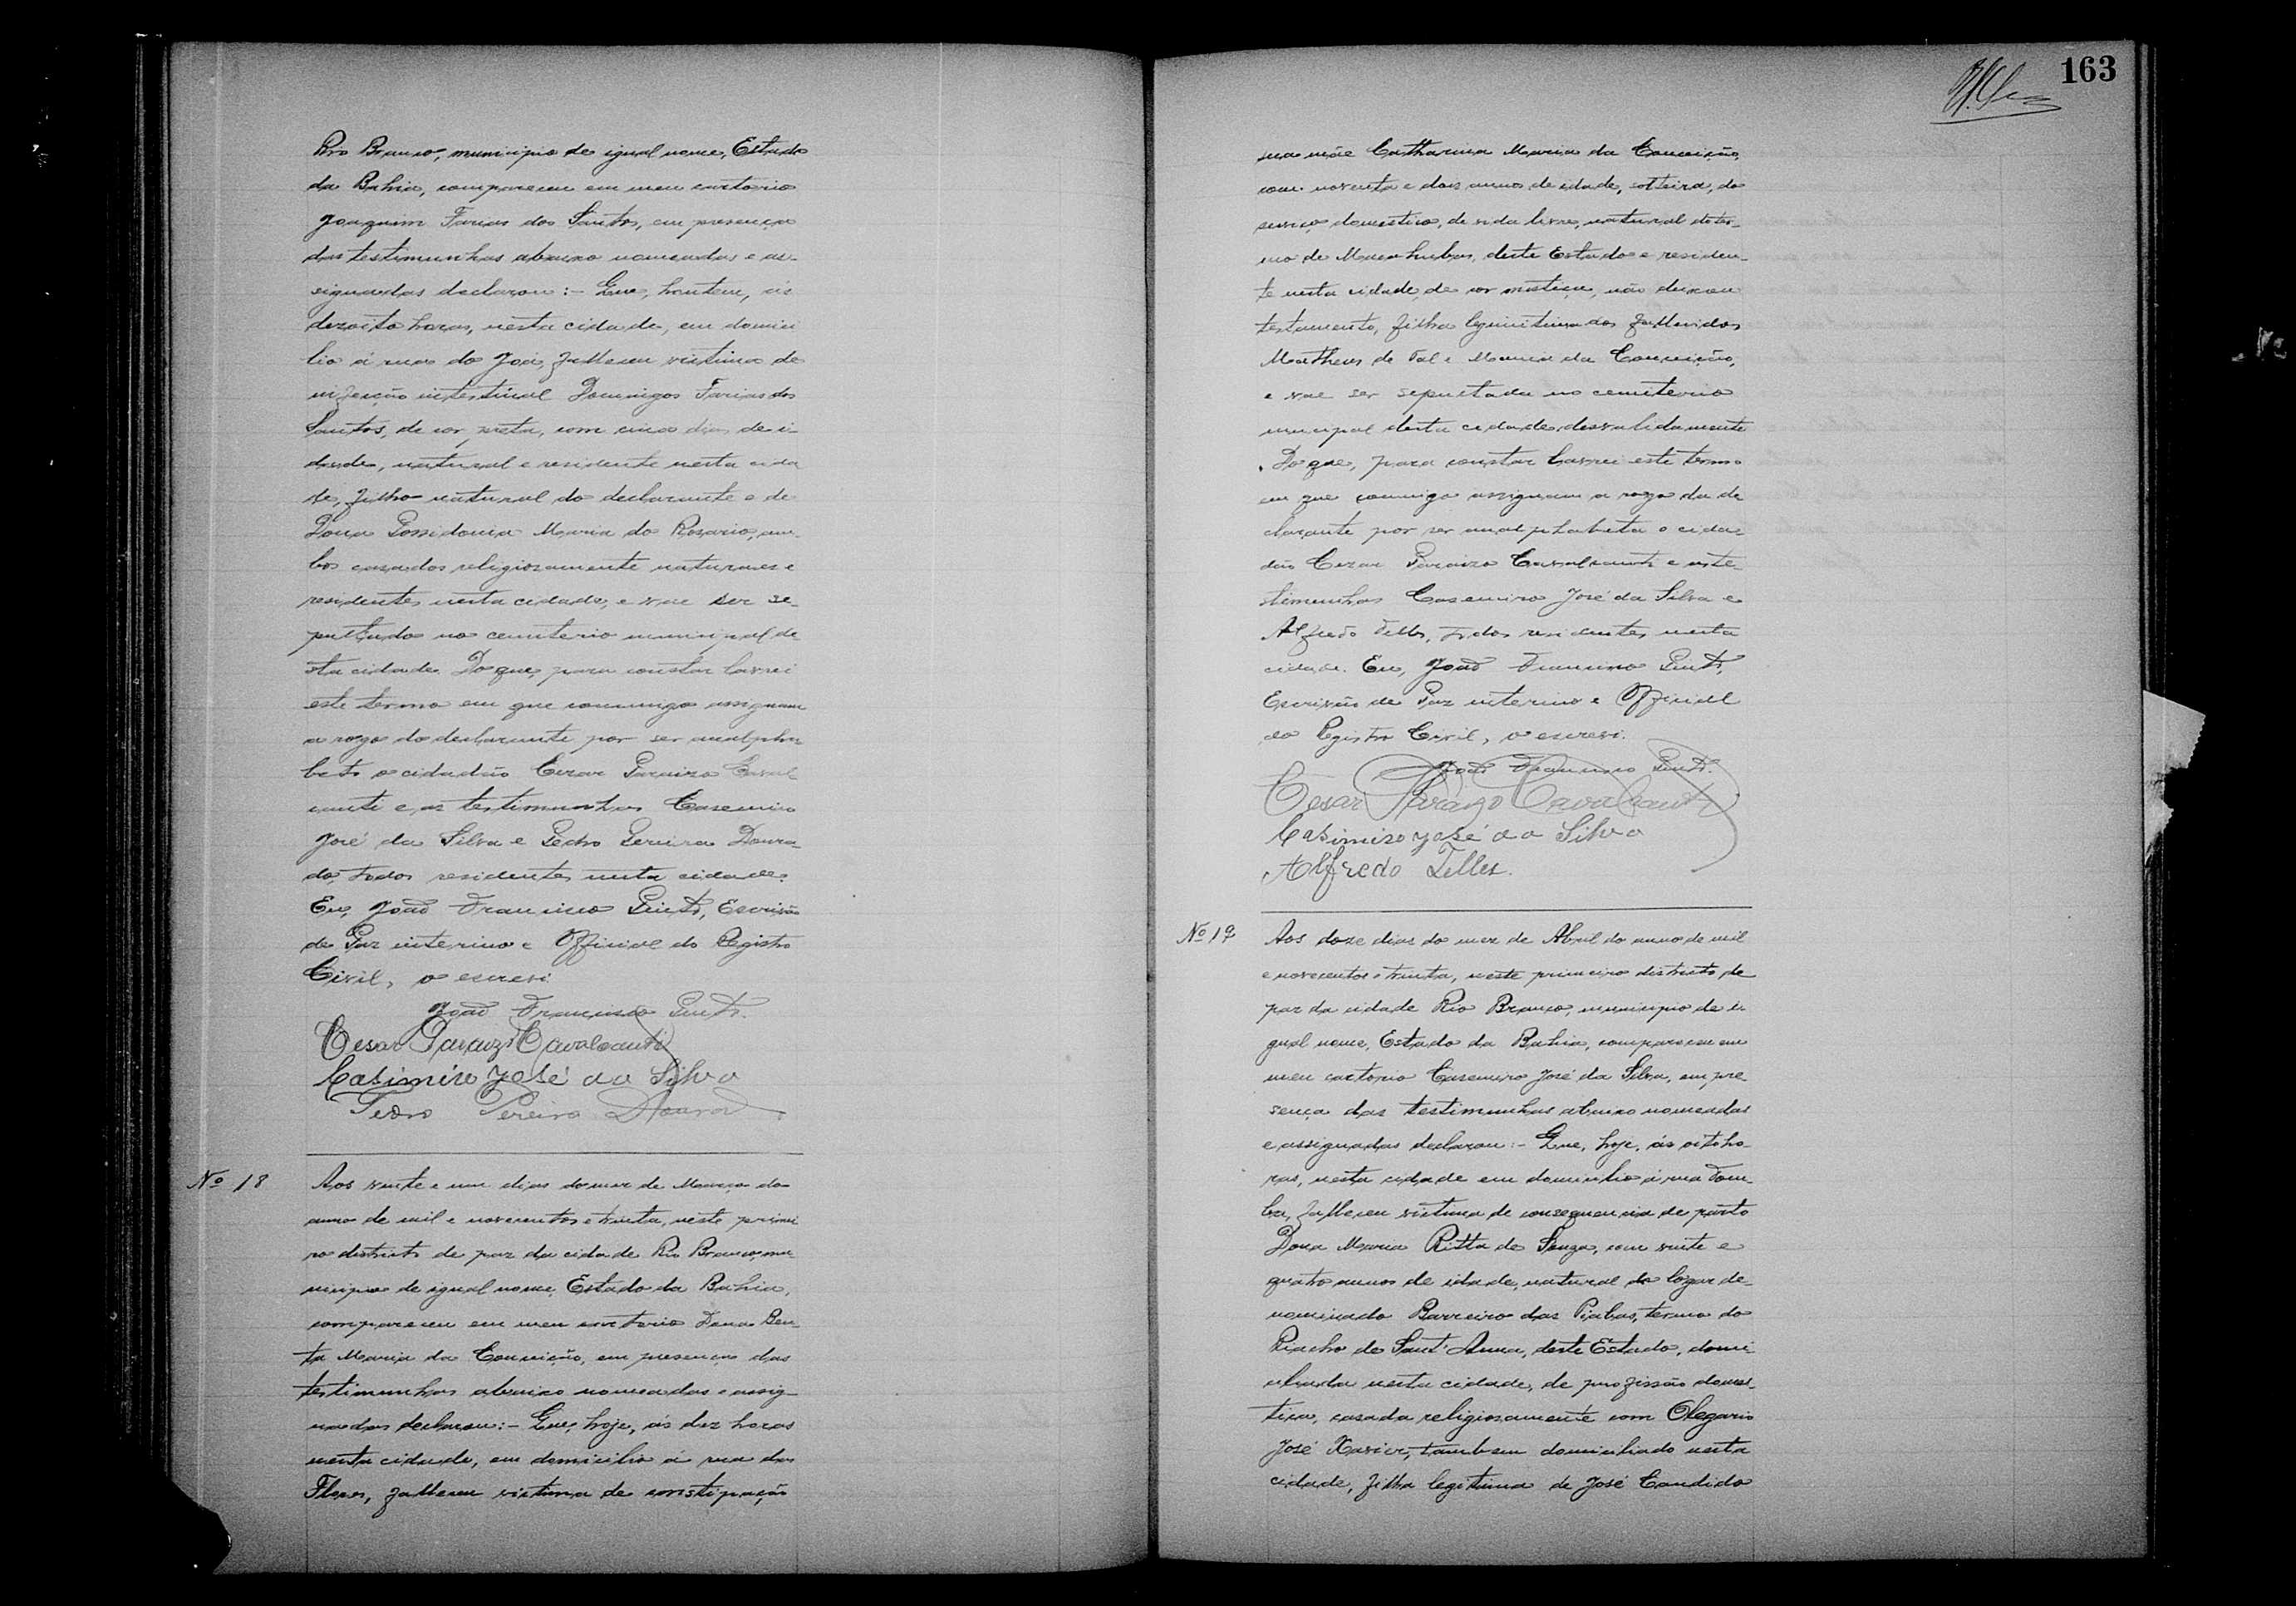 Rio Branco, municipio de igual nome, Estado
da Bahia, compareceu em meu cartorio
Joaquim Farias dos Santos, em presença
das testimunhas abaixo nomeadas e as-
signadas declarou:- Que, hontem, ás
dezoito horas, nesta cidade, em domici
lio á rua do Joá, falleceu victima de
infecção intestinal Domingos Farias dos
Santos, de cor preta, com cinco dias de i-
dade, natural e residente nesta cida
de, filho natural do declarante e de
Dona Possidonia Maria do Rosario, am-
bos casados religiosamente naturaes e
residentes nesta cidade, e vae ser se-
pultado no cemiterio municipal de
sta cidade. Do que, para constar lavrei
este termo em que commigo assignam
a rogo do declarante por ser analpha
beto o cidadão Cezar Paraizo Caval
canti e as testimunhas Casemiro
José da Silva e Pedro Pereira Doura
do, todos residentes nesta cidade.
Eu, João Francisco Pinto, Escrivão
de Paz interino e Official do Registro
Civil, o escrevi.
João Francisco Pinto.
Cesar Paraizo Cavalcanti
Casimiro José da Silva
Pedro Pereira Dourado
Nº 18
Aos vinte e um dias do mez de Março do
anno de mil e novecentos e trinta, neste primei
ro districto de paz da cidade Rio Branco, mu-
nicipio de igual nome, Estado da Bahia,
compareceu em meu cartorio Dona Ben-
ta Maria da Conceição, em presença das
testimunhas abaixo nomeadas e assig-
nadas declarou:- Que, hoje, ás dez horas
nesta cidade, em domicilio á rua das
Flores, falleceu victima de constipação
163
sua mãe Catharina Maria da Conceição,
com noventa e dois annos de idade, solteira, do
serviço domestico, de vida livre, natural do ter-
mo de Macahubas, deste Estado e residen-
te nesta cidade, de cor mestiça, não deixou
testamento, filha legimitima dos fallecidos
Matheus de Tal e Maria da Conceição,
e vae ser sepultada no cemiterio
municipal desta cidade, desvalidamente
. Do que, para constar lavrei este termo
em que commigo assignam a rogo da de
clarante por ser analphabeta o cida-
dão Cezar Paraizo Cavalcanti e as te-
stimunhas Casemiro José da Silva e
Alfredo Telles, todos residentes nesta
cidade. Eu, João Francisco Pinto,
Escrivão de Paz interino e Official
do Registro Civil, o escrevi.
João Francisco Pinto.
Cesar Paraizo Cavalcanti
Casimiro José da Silva
Alfredo Telles.
Nº 19
Aos doze dias do mez de Abril do anno de mil
e novecentos e trinta, neste primeiro districto de
paz da cidade Rio Branco, municipio de i-
gual nome, Estado da Bahia, compareceu em
meu cartorio Casemiro José da Silva, em pre-
sença das testimunhas abaixo nomeadas
e assignadas declarou:- Que, hoje, ás oito ho-
ras, nesta cidade em domicilio á rua
falleceu victima de consequencia de parto
Dona Maria Ritta de Souza, com vinte e
quatro annos de idade, natural do logar de-
nominado Barreiro das Piabas, termo do
Riacho de Sant'Anna, deste Estado, domi-
ciliada nesta cidade, de profissão domes-
tica, casada religiosamente com Olegario
José Xavier, tambem domiciliado nesta
cidade, filha legitima de José Candido